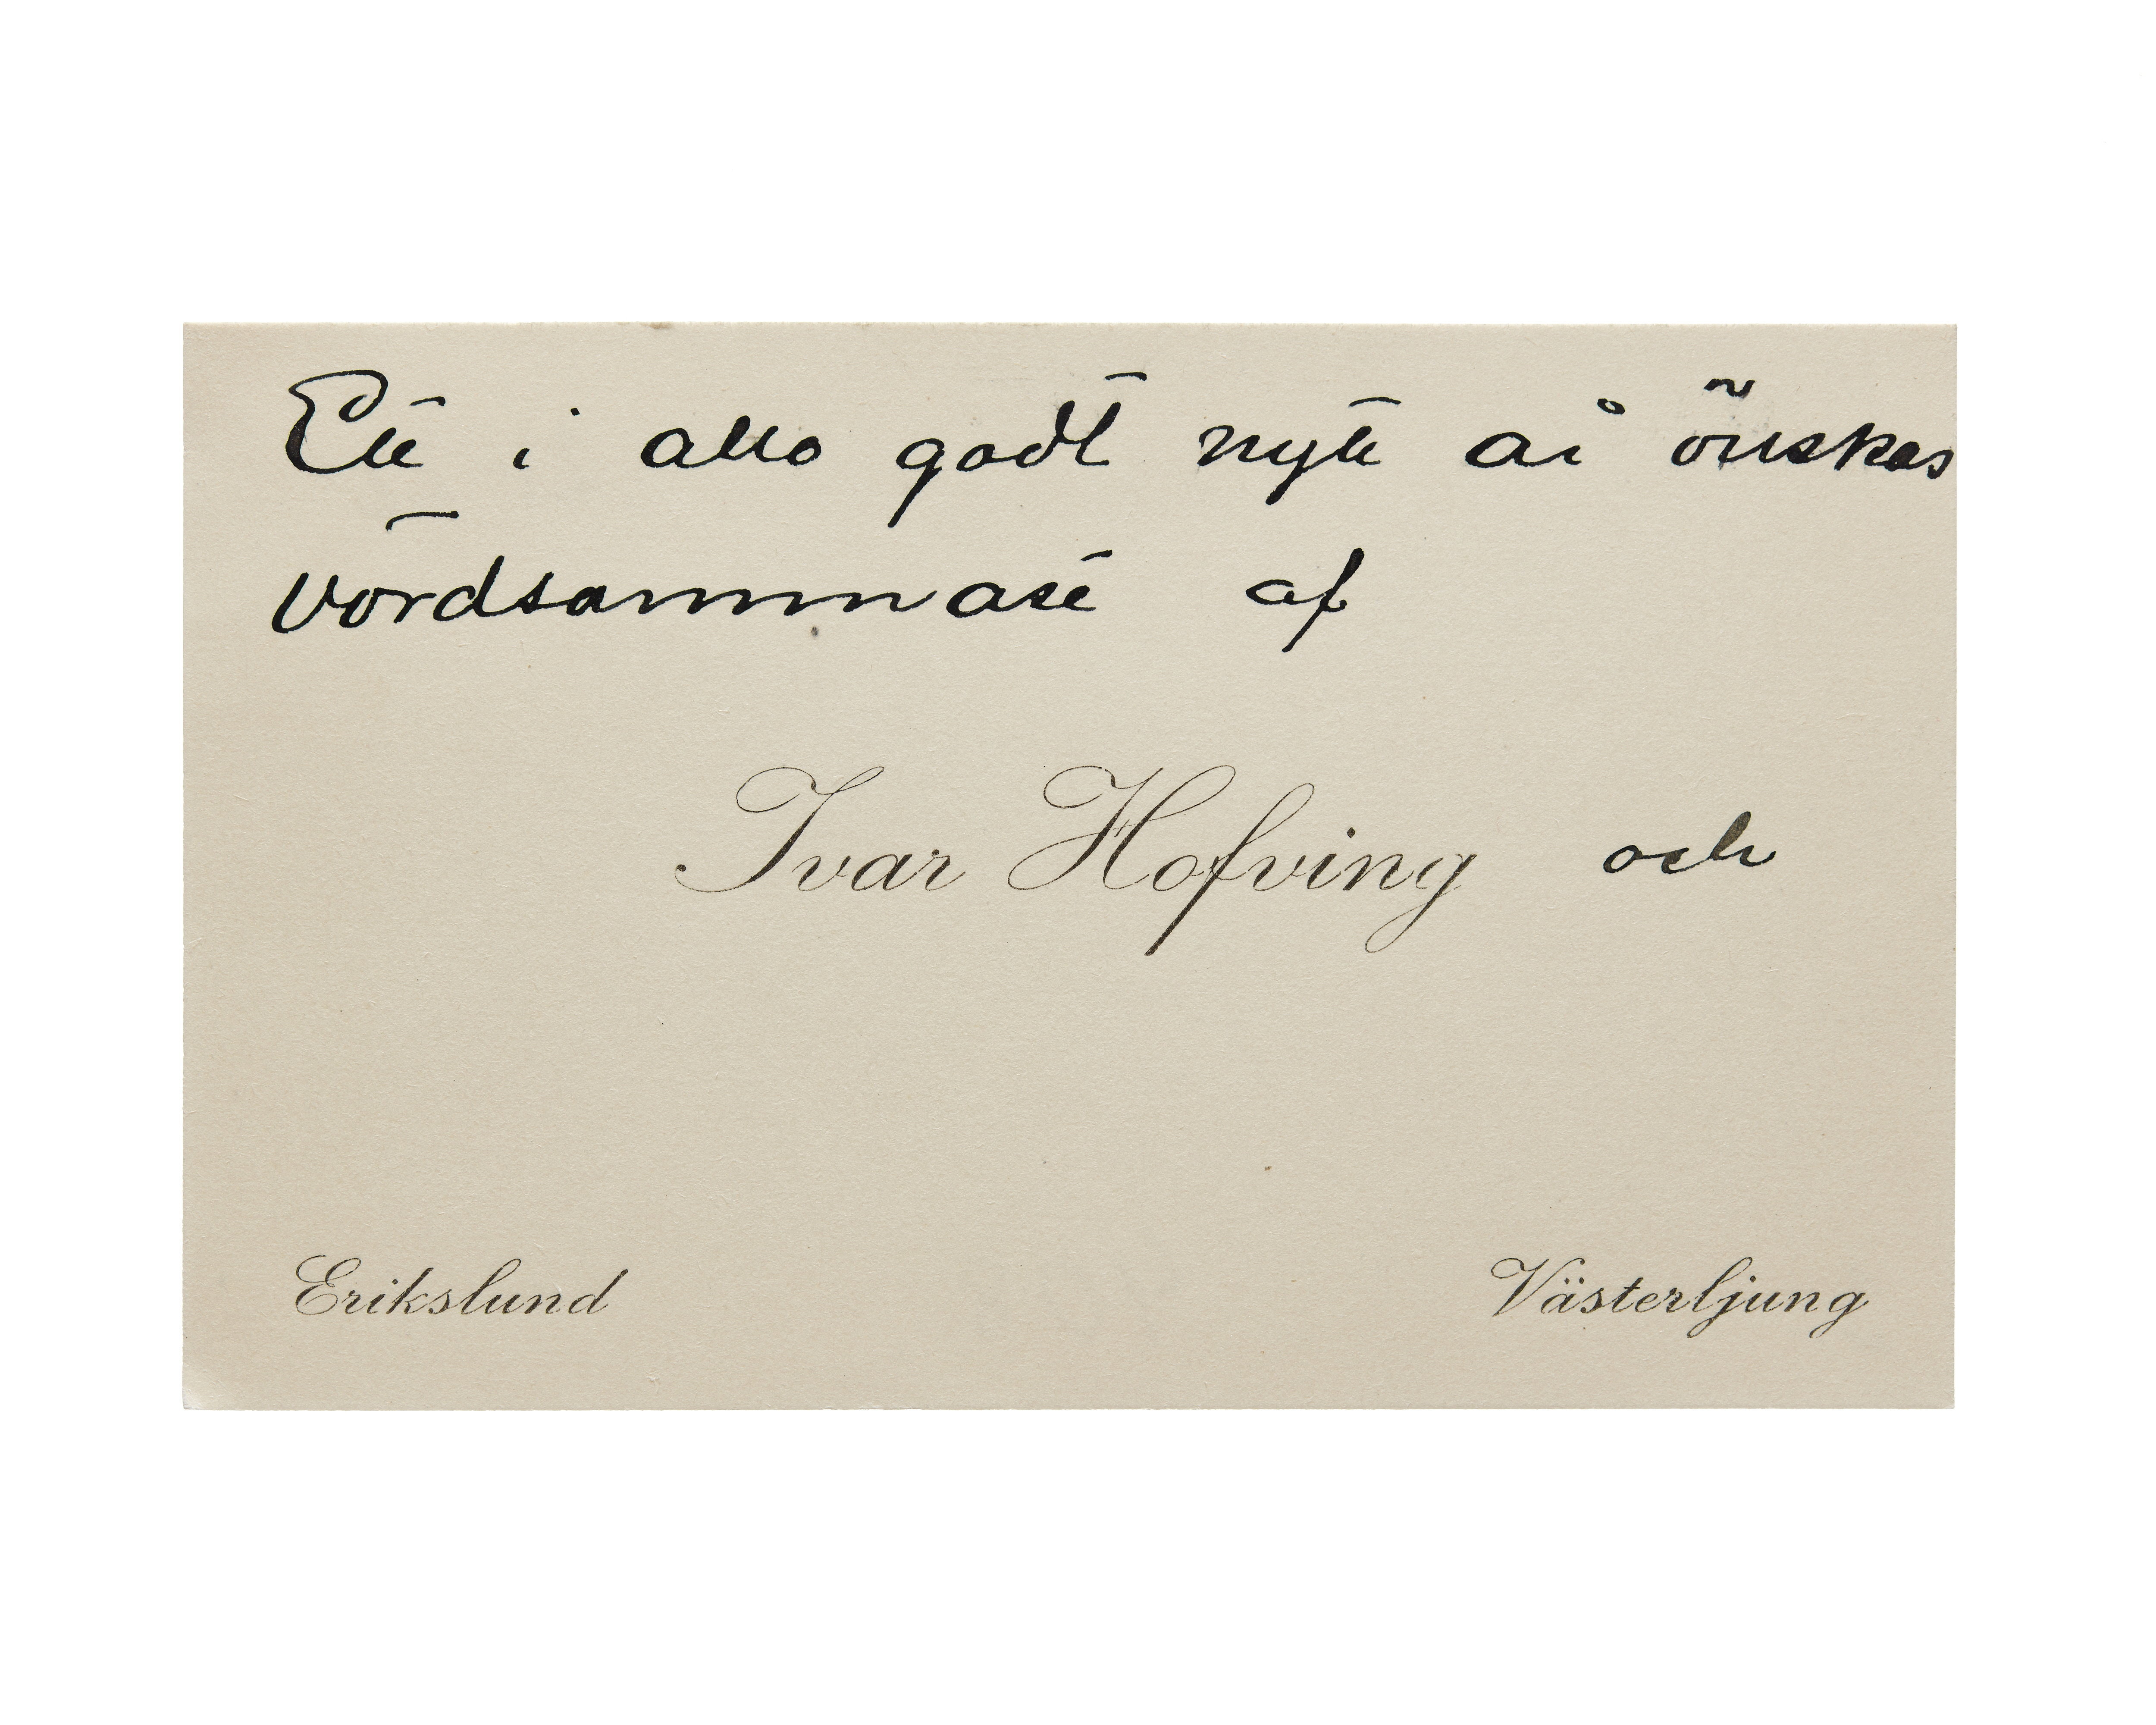 Ett i allo godt nytt år önskas
vördsammast af
Ivar Hofving och
Erikslund Västerljung